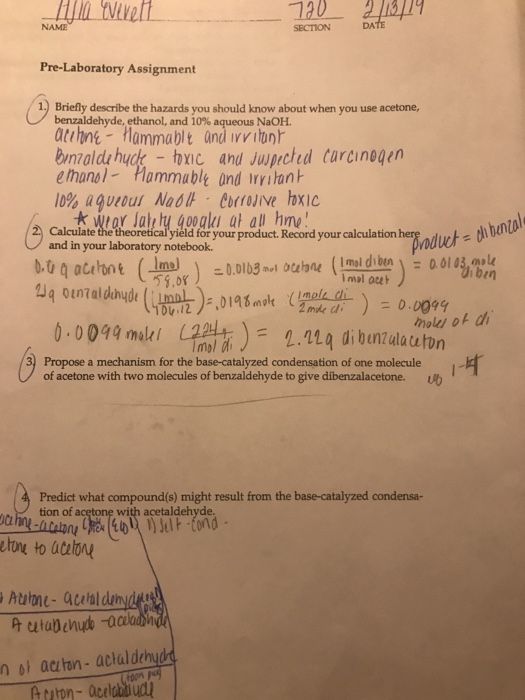 Everett 720 2/13/19
NAME SECTION DATE
Pre-Laboratory Assignment
1. Briefly describe the hazards you should know about when you use acetone,
benzaldehyde, ethanol, and 10% aqueous NaOH.
acetone - flammable and irritant
Benzaldehyde - toxic and suspected carcinogen
ethanol - flammable and irritant
10% aqueous NaOH - corrosive toxic
* wear safety goggles at all time!
2. Calculate the theoretical yield for your product. Record your calculation here
and in your laboratory notebook.
product = dibenzal
0.6 g acetone (1mol / 58.08) = 0.0103 mol acetone (1 mol diben / 1 mol acet) = 0.0103 mole diben
2.1g benzaldehyde (1mol / 106.12) = .0198 mole (1mole di / 2mole di) = 0.0099 moles of di
0.0099 moles (224 / 1mol di) = 2.22g dibenzalaceton
3. Propose a mechanism for the base-catalyzed condensation of one molecule
of acetone with two molecules of benzaldehyde to give dibenzalacetone.
1-4
4. Predict what compound(s) might result from the base-catalyzed condensa-
tion of acetone with acetaldehyde.
acetone 1) self-cond.
etone to acetone
Acetone - acetaldehyde
Acetaldehyde - acetaldehyde
n of aceton - acetaldehyde
Aceton - acetaldehyde